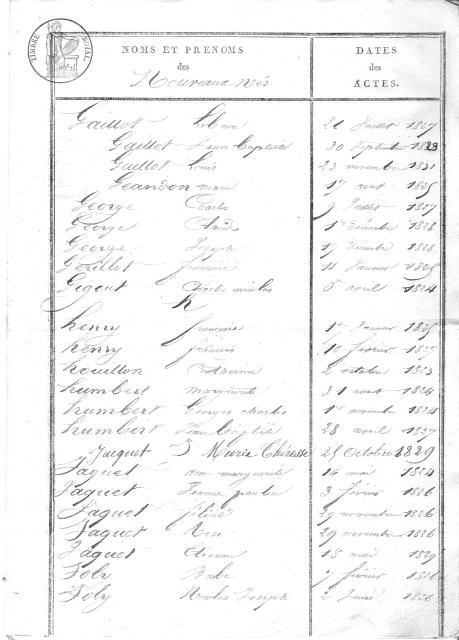 TIMBRE ROYAL
NOMS ET PRENOMS DATES
des des
Nouveaux nés ACTES.
Gaillot 21 Juillet 1827
Gaillot Jean Baptiste 30 Septembre 1823
Gaillot Louis 23 novembre 1831
Geandon marie 17 aout 1825
George Charles 9 Juillet 1827
George 1er Décembre 1828
George Joseph 19 Décembre 1828
Gouillot françoise 11 Janvier 1825
Gigout Charles nicolas 5 avril 1824
h
henry françoise 1er Janvier 1825
henry françois février 1827
houillon Catherine 2 octobre 1823
humbert marguerite 31 aout 1824
humbert Georges charles 1er novembre 1824
humbert Jean Baptiste 28 avril 1827
J
Jacquet Marie Thérèsse 25 Octobre 1829
Jaquet ann marguerite 16 mai 1824
Jaquet 3 février 1826
Jaquet 29 novembre 1826
Jaquet Rose 29 novembre 1826
Jaquet 18 mai 1829
Joly 7 février 1826
Joly Nicolas Joseph 2 Juin 1826